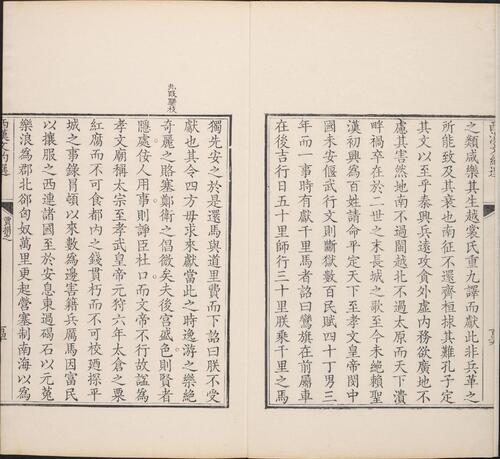 之類咸樂其生越裳氏重九譯而獻此非兵革之
所能致及其衰也南征不還齊桓捄其難孔子定
其文以至乎秦興兵遠攻貪外虛內務欲廣地不
慮其害然地南不過閩越北不過太原而天下潰
畔禍卒在於二世之末長城之歌至今未絕賴聖
漢初興為百姓請命平定天下至孝文皇帝閔中
國未安偃武行文則斷獄數百民賦四十丁男三
年而一事時有獻千里馬者詔曰鸞旗在前屬車
在後吉行日五十里師行三十里朕乘千里之馬
獨先安之於是還馬與道里費而下詔曰朕不受
獻也其令四方毋求來獻當此之時逸游之樂絕
奇麗之賂塞鄭衛之倡微矣夫後宮盛色則賢者
隱處佞人用事則諍臣杜口而文帝不行故諡為
孝文廟稱太宗至孝武皇帝元狩六年太倉之粟
紅腐而不可食都內之錢貫朽而不可校乃探平
城之事錄冒頓以來數為邊害籍兵厲馬因富民
以攘服之西連諸國至於安息東過碣石以元菟
樂浪為郡北郤匈奴萬里更起營塞制南海以為
西漢文約選
賈捐之